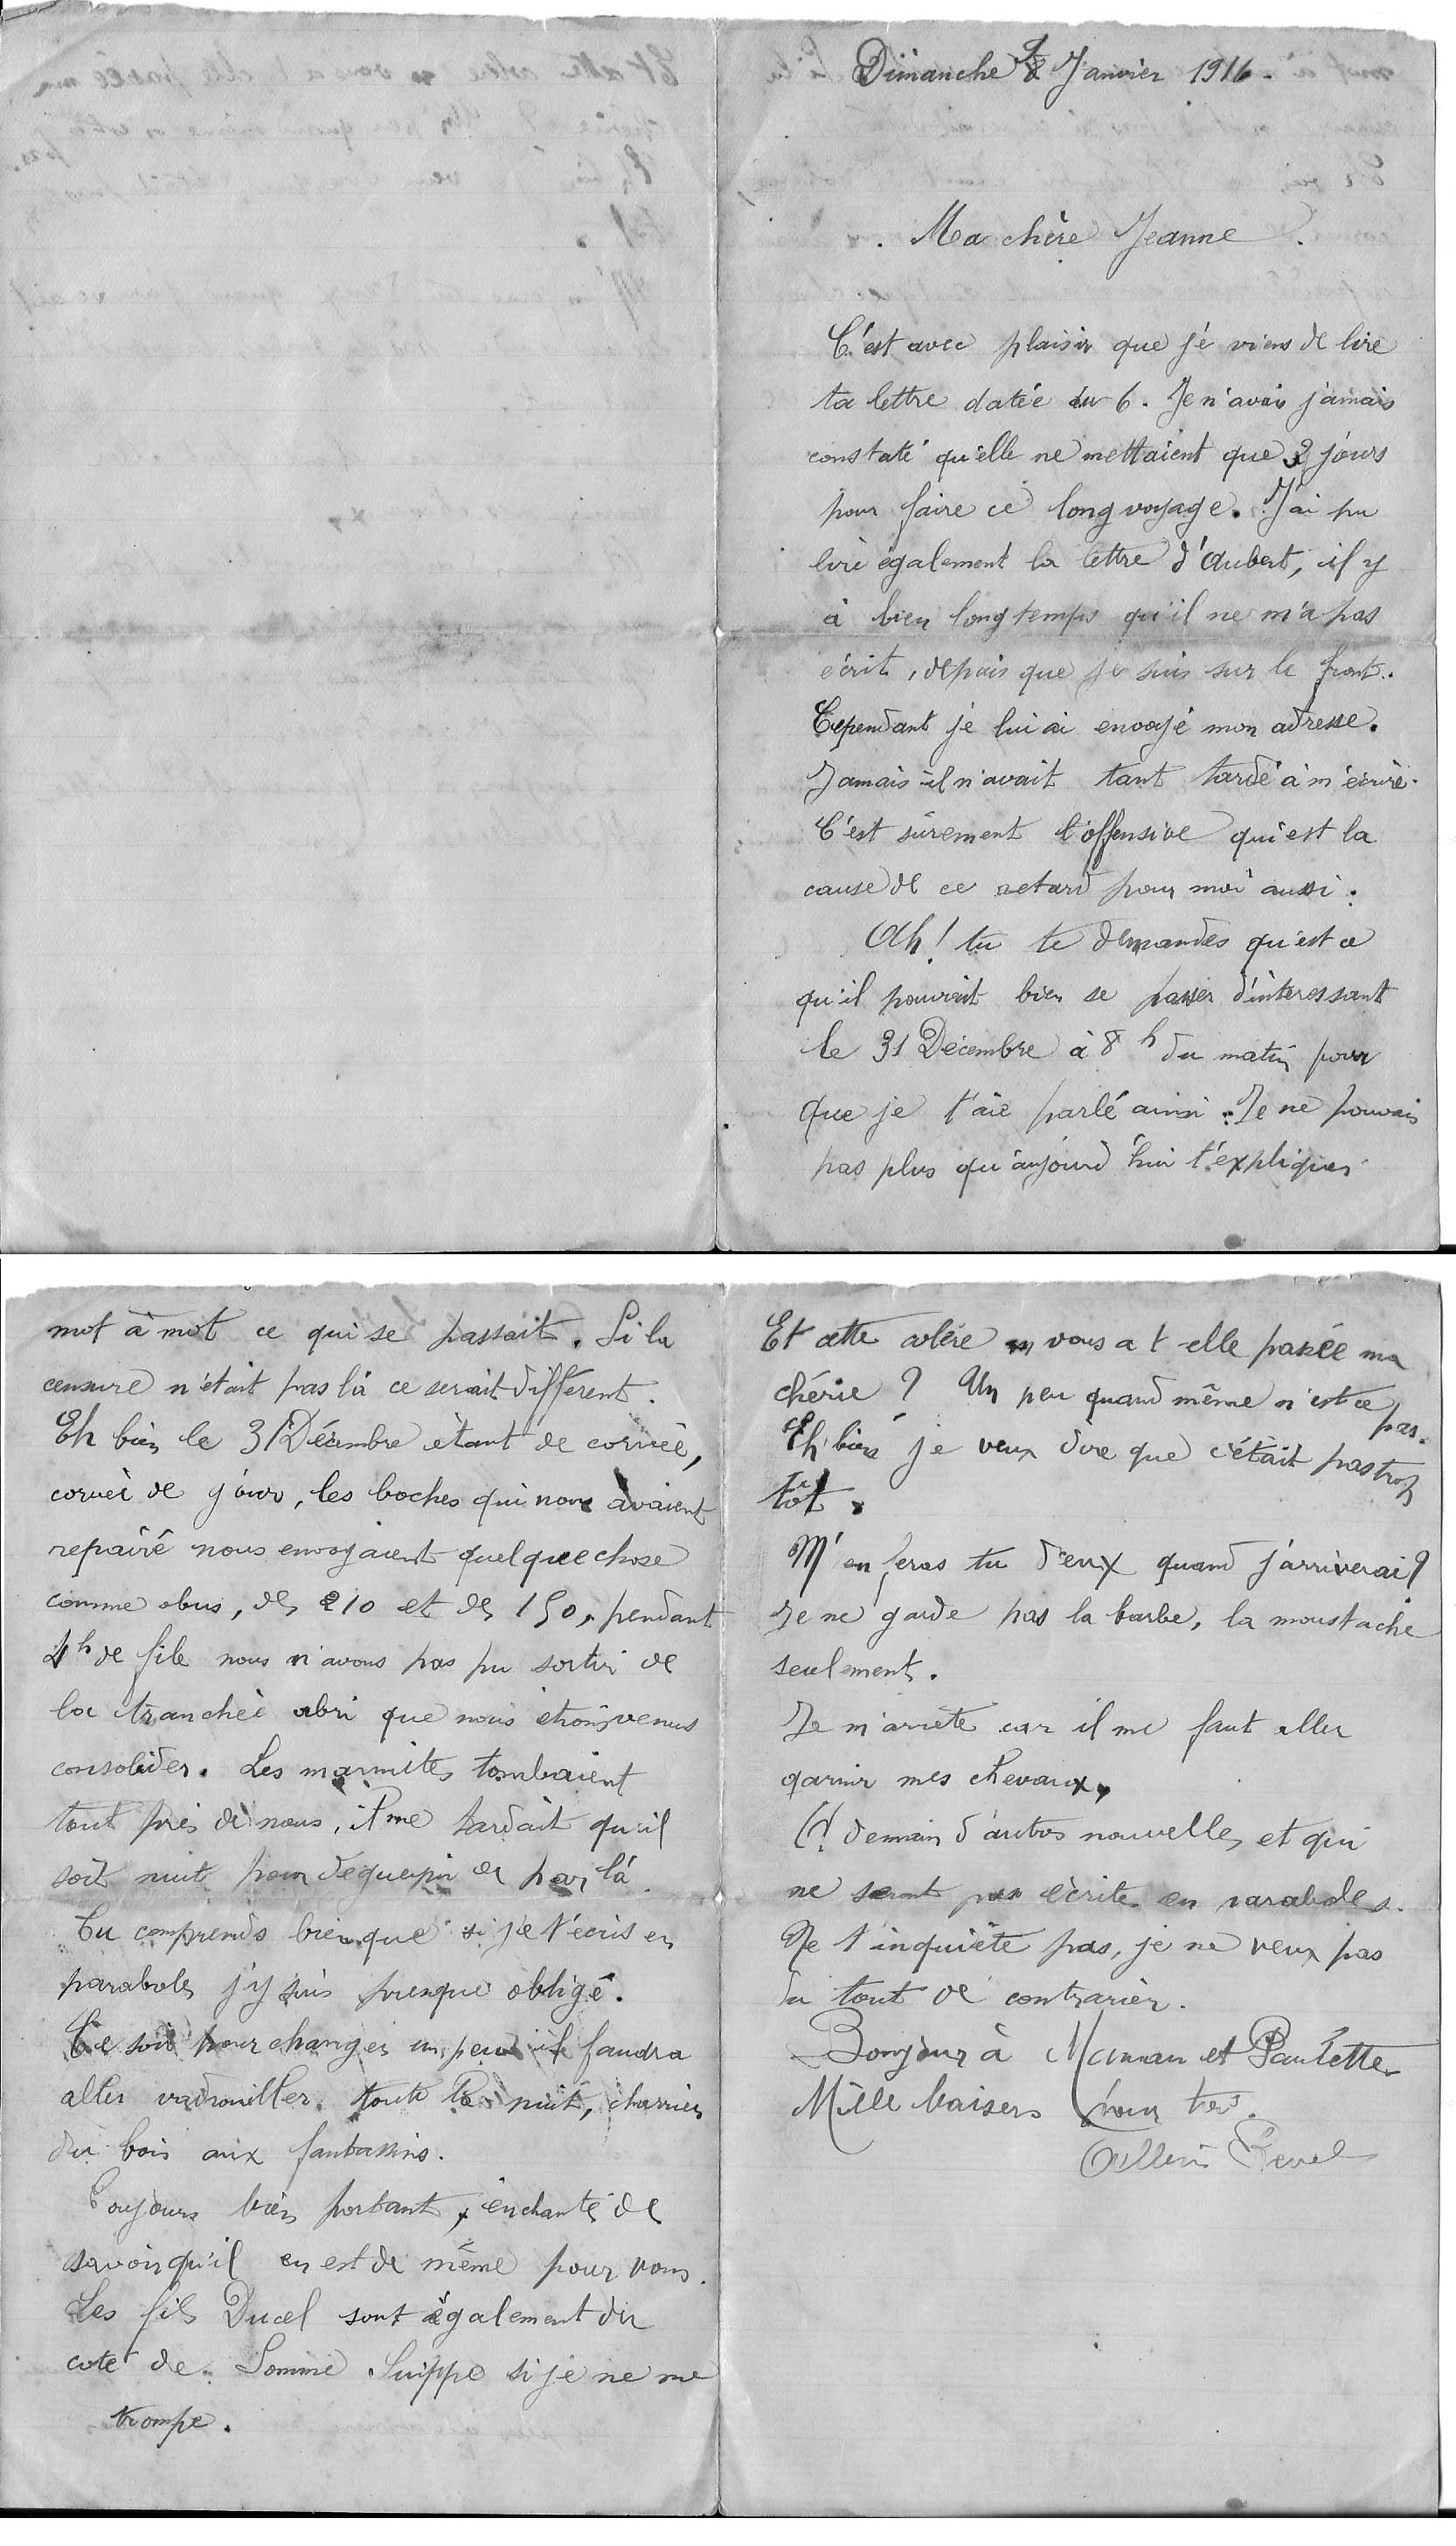 Dimanche 9 Janvier 1916.
Ma chère Jeanne.
C'est avec plaisir que je viens de lire
ta lettre datée du 6. Je n'avais jamais
constaté qu'elle ne mettaient que 3 jours
pour faire ce long voyage. J'ai pu
lire également la lettre d'Aubert, il y
à bien longtemps qu'il ne m'a pas
écrit, depuis que je suis sur le front.
Cependant je lui ai envoyé mon adresse.
Jamais il n'avait tant tardé à m'écrire.
C'est sûrement l'offensive qui est la
cause de ce retard pour moi aussi.
Ah! tu te demandes qu'est ce
qu'il pouvait bien se passer d'interessant
le 31 Décembre à 8h du matin pour
que je t'aie parlé ainsi. Je ne pouvais
pas plus qu'aujourd'hui t'expliquer
mot à mot ce qui se passait. Si la
censure n'était pas là ce serait différent.
Eh bien le 31 Décembre étant de corvée,
corvée de jour, les boches qui nous avaient
repairé nous envoyaient quelque chose
comme obus, des 210 et des 150, pendant
4h de file nous n'avons pas pu sortir de
la tranchée abri que nous étions venus
consolider. Les marmites tombaient
tout près de nous, il me tardait qu'il
soit nuit pour déguerpir de par là.
Tu comprends bien que si je t'écris en
paraboles j'y suis presque obligé.
Ce soir pour changer un peu il faudra
aller vadrouiller toute la nuit, charrier
du bois aux fantassins.
Toujours bien portant, enchanté de
savoir qu'il en est de même pour vous.
Les fils Ducel sont également du
coté de Somme Suippe si je ne me
trompe.
Et cette colère vous a t-elle passée ma
chérie? Un peu quand même n'est ce pas.
Eh bien je veux dire que c'était pas trop
tôt.
M'en feras tu d'eux quand j'arriverai?
Je ne garde pas la barbe, la moustache
seulement.
Je m'arrête car il me faut aller
garnir mes chevaux,
A demain d'autres nouvelles et qui
ne seront pas écrites en paraboles.
Ne t'inquiète pas, je ne veux pas
du tout de contrarier.
Bonjour à Maman et Paulette
Mille baisers pour tous.